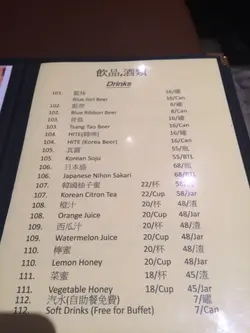 飲品,酒類
Drinks
101. 藍妹 16/罐
Blue Girl Beer 16/Can
102. 藍帶 8/罐
102. Blue Ribbon Beer 8/Can
103. 青島 16/罐
103. Tsang Tao Beer 16/Can
104. HITE(啤啤) 16/罐
104. HITE (Korea Beer) 16/Can
105. 真露 55/瓶
105. Korean Soju 55/BTL
106. 日本盛 68/瓶
106. Japanese Nihon Sakari 68/BTL
107. 韓國柚子蜜 22/杯 58/
107. Korean Citron Tea 22/Cup 58/Jar
108. 橙汁 20/杯 48/渣
108. Orange Juice 20/Cup 48/Jar
109. 西瓜汁 20/杯 48/渣
109. Watermelon Juice 20/Cup 48/Jar
110. 檸蜜 20/杯 48/渣
110. Lemon Honey 20/Cup 48/Jar
111. 菜蜜 18/杯 45/渣
111. Vegetable Honey 18/Cup 45/Jar
112. 汽水(自助餐免費) 7/罐
112. Soft Drinks (Free for Buffet) 7/Can